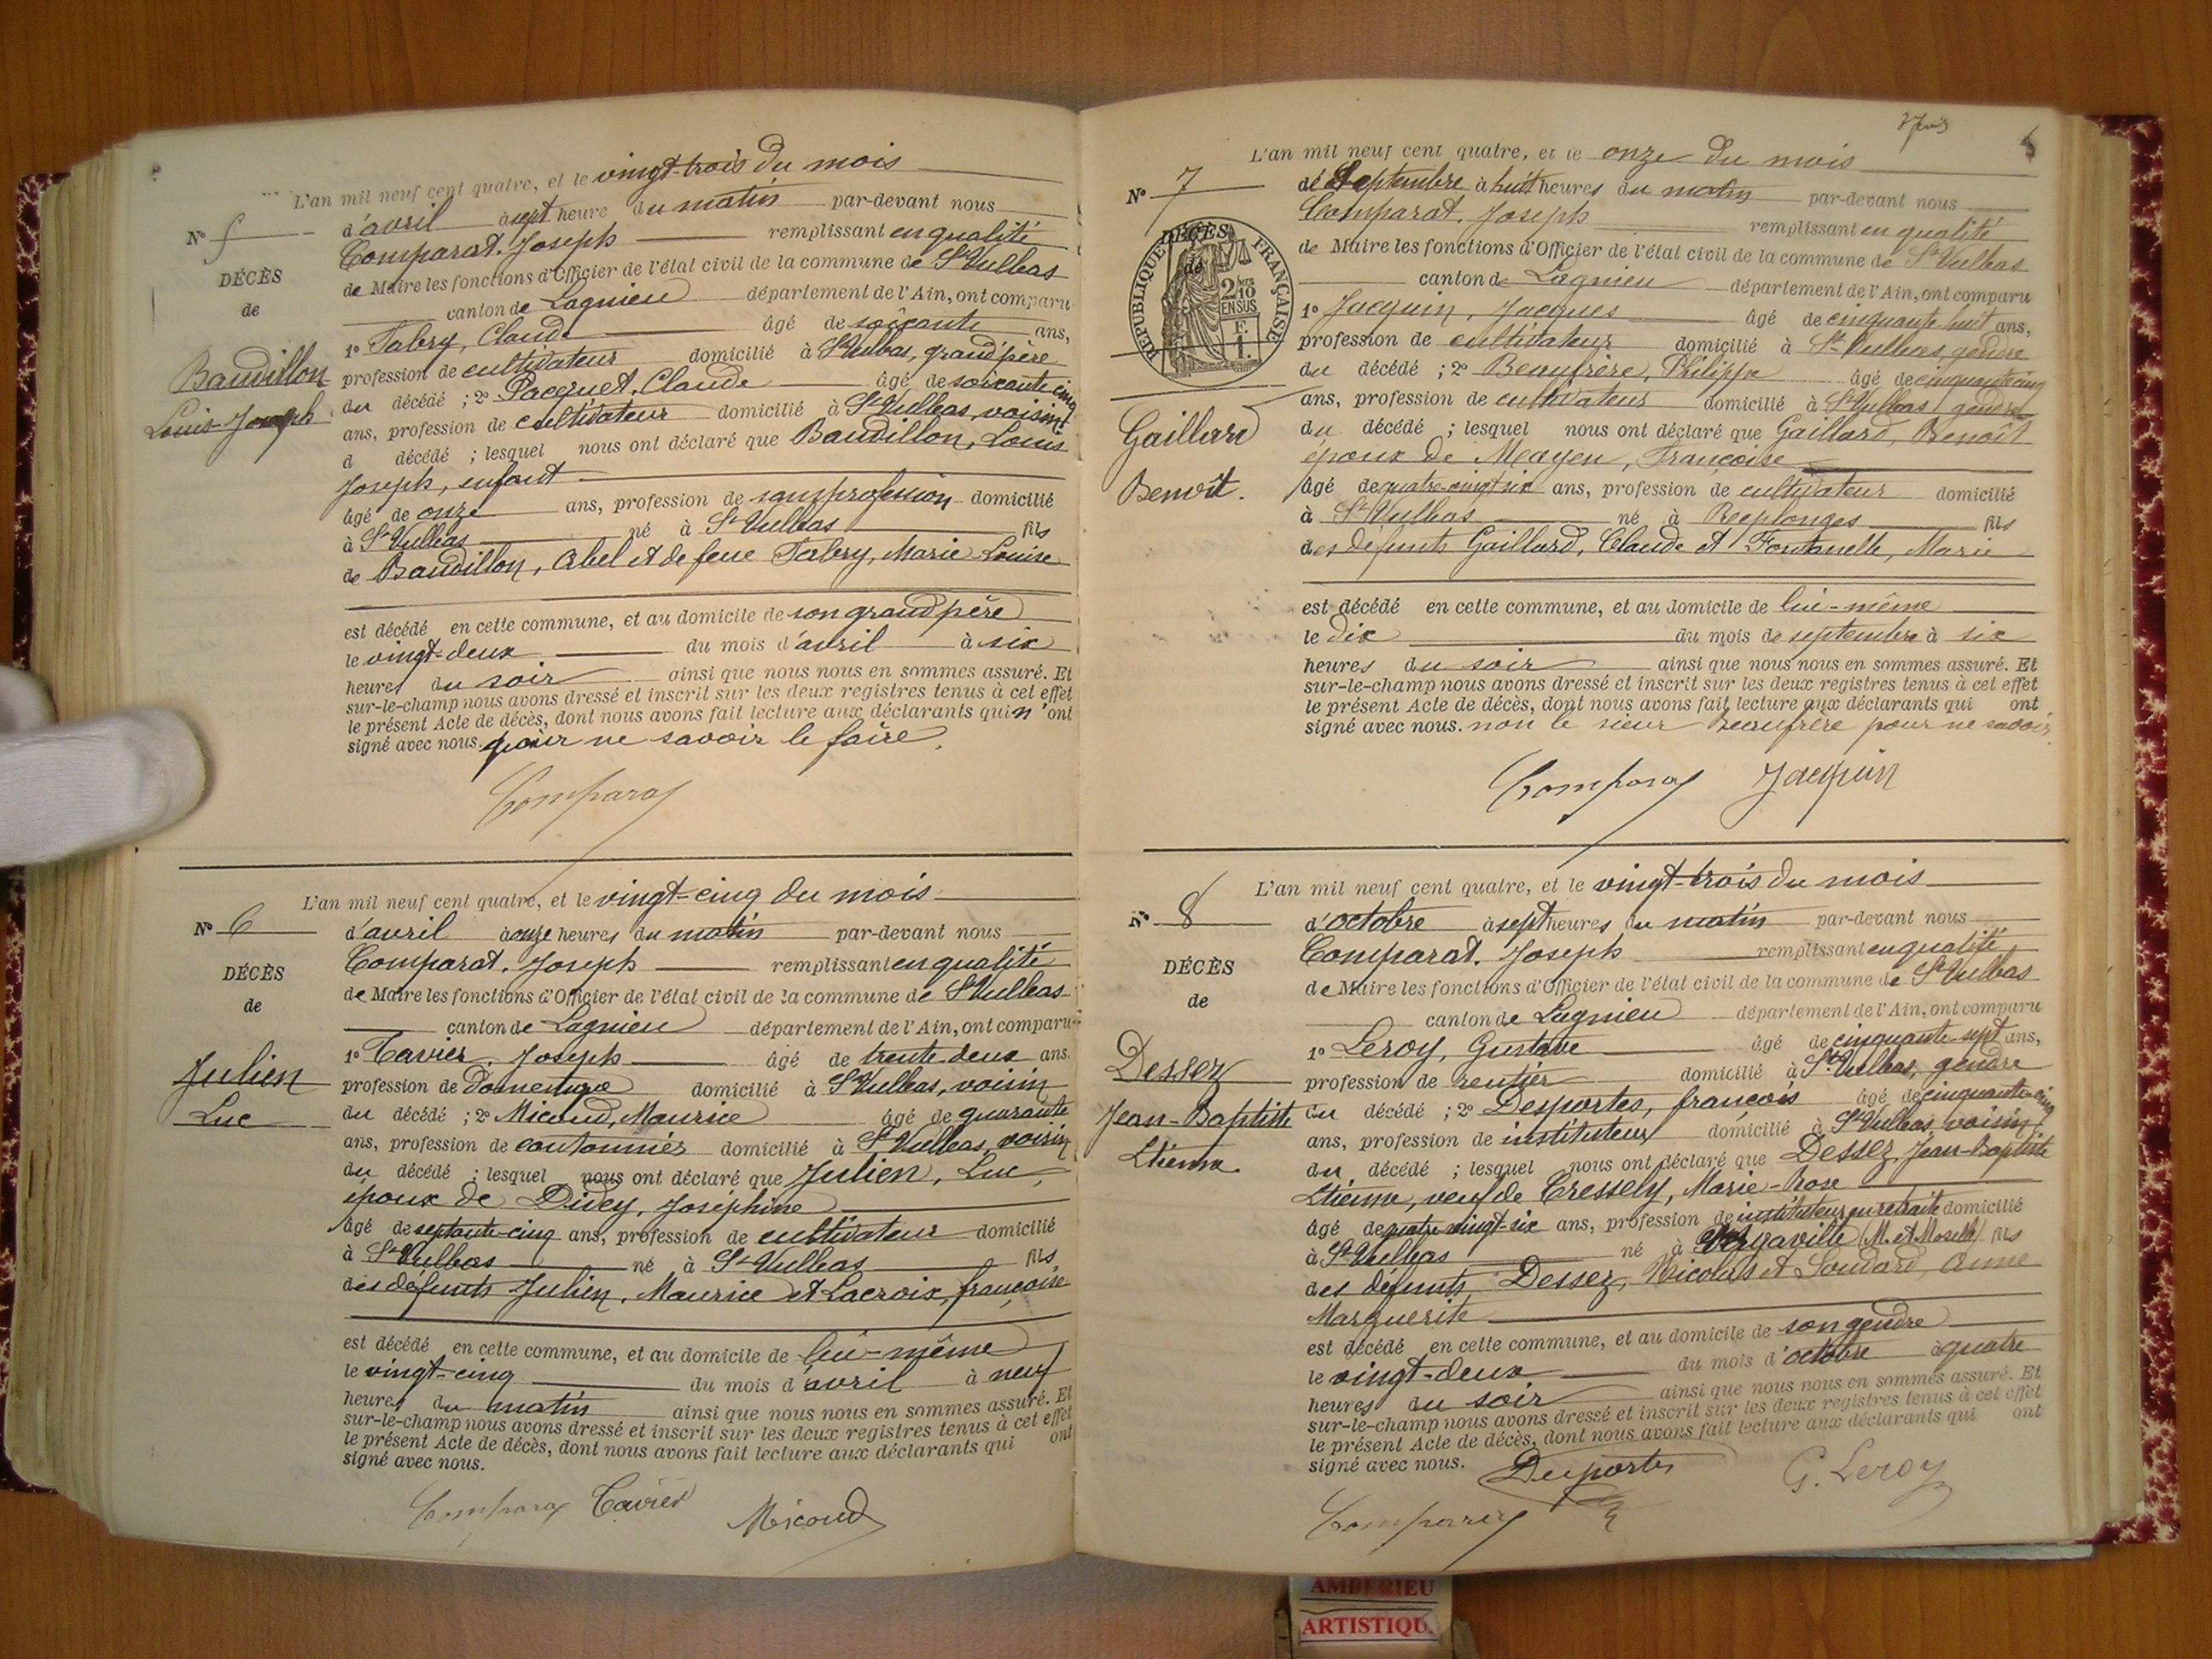 L'an mil neuf cent quatre, et le vingt-trois du mois
N° 5
d'avril à sept heure du matin par-devant nous
Comparat, Joseph remplissant en qualité
DÉCÈS
de Maire les fonctions d'Officier de l'état civil de la commune de St Vulbas
de
canton de Lagnieu département de l'Ain, ont comparu
1° Fabry, Claude âgé de soixante ans,
Baudillon
Louis-Joseph
profession de cultivateur domicilié à St Vulbas, grand'père
du décédé ; 2° Pacquet, Claude âgé de soixante cinq
ans, profession de cultivateur domicilié à St Vulbas, voisin
d décédé ; lesquel nous ont déclaré que Baudillon, Louis
Joseph, enfant
âgé de onze ans, profession de sans profession domicilié
à St Vulbas né à St Vulbas fils
de Baudillon, Abel et de feue Fabry, Marie Louise
est décédé en cette commune, et au domicile de son grand père
le vingt-deux du mois d'avril à six
heures du soir ainsi que nous nous en sommes assuré. Et
sur-le-champ nous avons dressé et inscrit sur les deux registres tenus à cet effet
le présent Acte de décès, dont nous avons fait lecture aux déclarants qui n'ont
signé avec nous. pour ne savoir le faire.
Comparat
L'an mil neuf cent quatre, et le vingt-cinq du mois
N° 6
d'avril à onze heures du matin par-devant nous
Comparat, Joseph remplissant en qualité
DÉCÈS
de Maire les fonctions d'Officier de l'état civil de la commune de St Vulbas
de
canton de Lagnieu département de l'Ain, ont comparu
1° Tavier, Joseph âgé de trente deux ans.
Julien
Luc
profession de domestique domicilié à St Vulbas, voisin
du décédé ; 2° Micoud, Maurice âgé de quarante
ans, profession de cantonnier domicilié à St Vulbas, voisin
du décédé ; lesquel nous ont déclaré que Julien, Luc,
époux de Didey, Joséphine
âgé de septante-cinq ans, profession de cultivateur domicilié
à St Vulbas né à St Vulbas fils
des défunts Julien, Maurice et Lacroix, françoise
est décédé en cette commune, et au domicile de lui-même
le vingt-cinq du mois d'avril à neuf
heures du matin ainsi que nous nous en sommes assuré. Et
sur-le-champ nous avons dressé et inscrit sur les deux registres tenus à cet effet
le présent Acte de décès, dont nous avons fait lecture aux déclarants qui ont
signé avec nous.
Comparat Tavier Micoud
L'an mil neuf cent quatre, et le onze du mois
N° 7
de Septembre à huit heures du matin par-devant nous
Comparat, Joseph remplissant en qualité
DÉCÈS
de Maire les fonctions d'Officier de l'état civil de la commune de St Vulbas
de
REPUBLIQUE FRANÇAISE
2 MES
10
EN SUS
F.
1.
canton de Lagnieu département de l'Ain, ont comparu
1° Jacquin, Jacques âgé de cinquante huit ans,
profession de cultivateur domicilié à St Vulbas, gendre
du décédé ; 2° Beaufrère, Philippe âgé de cinquante cinq
Gaillard
Benoit.
ans, profession de cultivateur domicilié à St Vulbas, gendre
du décédé ; lesquel nous ont déclaré que Gaillard, Benoit
époux de Mayen, Françoise
âgé de quatre-vingt six ans, profession de cultivateur domicilié
à St Vulbas né à Replonges fils
des défunts Gaillard, Claude et Fontanelle, Marie
est décédé en cette commune, et au domicile de lui-même
le dix du mois de septembre à six
heures du soir ainsi que nous nous en sommes assuré. Et
sur-le-champ nous avons dressé et inscrit sur les deux registres tenus à cet effet
le présent Acte de décès, dont nous avons fait lecture aux déclarants qui ont
signé avec nous. non le sieur Beaufrère pour ne savoir
Comparat Jacquin
L'an mil neuf cent quatre, et le vingt-trois du mois
N° 8
d'octobre à sept heures du matin par-devant nous
Comparat, Joseph remplissant en qualité
DÉCÈS
de Maire les fonctions d'Officier de l'état civil de la commune de St Vulbas
de
canton de Lagnieu département de l'Ain, ont comparu
1° Leroy, Gustave âgé de cinquante-sept ans,
Dessez
Jean-Baptiste
Etienne
profession de rentier domicilié à St Vulbas, gendre
du décédé ; 2° Desportes, françois âgé de cinquante-cinq
ans, profession de instituteur domicilié à St Vulbas, voisin
du décédé ; lesquel nous ont déclaré que Dessez, Jean-Baptiste
Etienne, veuf de Cressely, Marie-Rose
âgé de quatre vingt-six ans, profession de instituteur en retraite domicilié
à St Vulbas né à Vergaville (M. et Moselle) fils
des défunts, Dessez, Nicolas et Soudard, Anne
Marguerite
est décédé en cette commune, et au domicile de son gendre
le vingt-deux du mois d'octobre à quatre
heures du soir ainsi que nous nous en sommes assuré. Et
sur-le-champ nous avons dressé et inscrit sur les deux registres tenus à cet effet
le présent Acte de décès, dont nous avons fait lecture aux déclarants qui ont
signé avec nous. Desportes G. Leroy
Comparat
AMBERIEU
ARTISTIQU